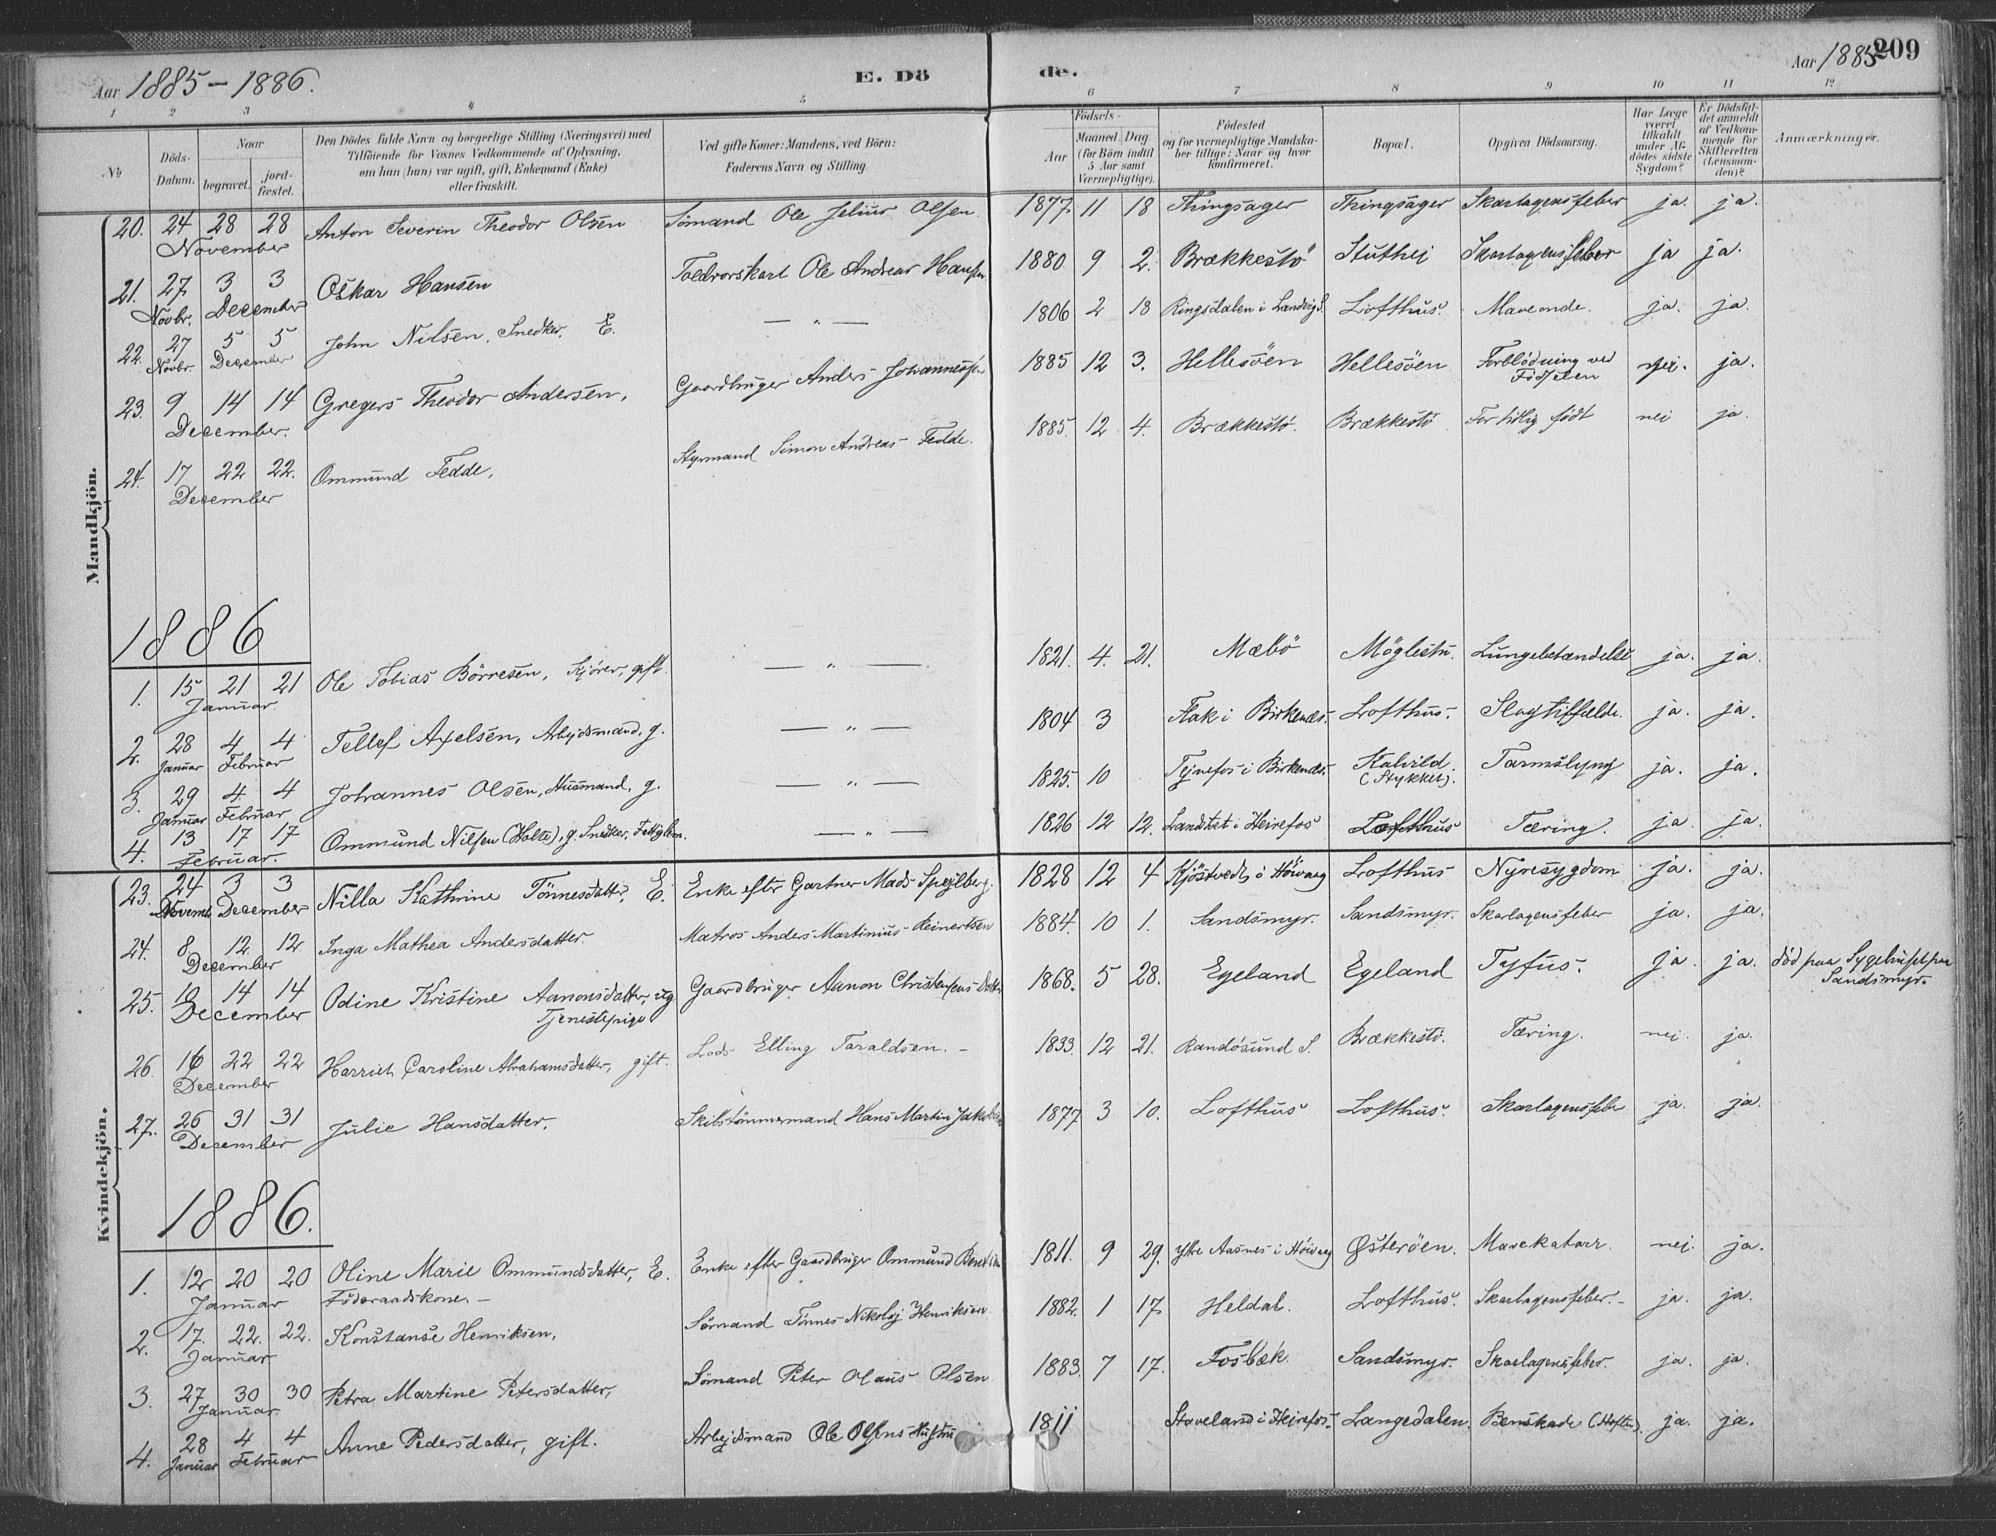 Aar 1885 – 1886. E. Dö de. Aar 1885 209
1 2 3 4 5 6 7 8 9 10 11 12
№ Döds-Datum. Naar begravet. jord-fæstet. Den Dödes fulde Navn og borgerlige Stilling (Næringsvei) med Tilföiende for Voxnes Vedkommende af Oplysning, om han (hun) var ugift, gift, Enkemand (Enke) eller fraskilt. Ved gifte Koner: Mandens, ved Börn: Faderens Navn og Stilling. Födsels- Aar Maaned. Dag. (for Börn indtil 5 Aar samt Værnepligtige). Födested og for værnepligtige Mandskaber tillige: Naar og hvor konfirmeret. Bopæl. Opgiven Dödsaarsag. Har Læge været tilkaldt under Afdödes sidste Sygdom? Er Dödsfaldet anmeldt af Vedkommende for Skifteretten (Lensmanden)? Anmærkninger.
Mandkjön.
20. 24 28 28 November Anton Severin Theodor Olsen Sömand Ole Julius Olsen 1877 11 18 Thingsager Thingsager Skarlagensfeber ja. ja.
21. 27 Novbr. 3 3 December Oskar Hansen Ole Andreas Hansen 1880 9 2. Brækkestö Stuthei Skarlagensfeber ja ja.
22. 27 Novbr. 5 5 December John Nilsen, Snedker, E. — „ — 1806 2 18 Ringsdalen i Landvig S. Lofthus. Maveonde. ja. ja.
23. 9 14 14 December. Gregers Theodor Andersen, Gaardbruger Anders Johannesen 1885 12 3. Hellesöen Hellesöen Forblödning ved Födselen nei. ja.
24. 17 22 22. December Ommund Fedde, Styrmand Simon Andreas Fedde. 1885. 12 4. Brækkestö. Brækkestö For tidlig födt nei ja.
1886
1. 15 21 21 Januar. Ole Tobias Börresen, gift. — „ — 1821. 4. 21. Mæbö Möglestu. Lungebetændelse ja. ja.
2. 28 Januar 4 4 Februar Tellef Axelsen, Arbejdsmand, g. — „ — 1804 3 Flak i Birkenæs. Lofthus. Slagtilfælde. ja. ja.
3. 29 Januar 4 4 Februar Johannes Olsen, Husmand, g. — „ — 1825. 10 Tjnefos i Birkenæs. Kalvild. (Stykket). Tarmslyng ja. ja.
4. 13 17 17 Februar. Ommund Nilsen (Holte), g. Snedker, — „ — 1826 12 12. i Heirefos Lofthus Tæring. ja. ja.
Kvindekjön.
23. 24 Novemb. 3 3 December Nilla Kathrine Tönnesdatter, E. Enke efter Gartner Mads Spejlberg. 1828 12 4 i Höivaag Lofthus Nyresygdom ja. ja.
24. 8 12 12 December Inga Mathea Andersdatter. Matros Anders Martinius Reinertsen 1884. 10 1. Sandsmyr. Sandsmyr. Skarlagensfeber ja. ja.
25. 10 14 14 December Odine Kristine Aanonsdatter, ug. Tjenestepige Gaardbruger Aanon Christensens Datter 1868. 5 28. Egeland Egeland Tyfus. ja. ja. död paa Sygehuset paa Sandsmyr.
26. 16 22 22 December Harriet Caroline Abrahamsdatter, gift. Lods Elling Taraldsen. – 1833. 12 21. Randösund S. Brækkestö. Tæring. nei. ja.
27. 26 31 31 December Julie Hansdatter. Skibstömmermand Hans Martin Jakobsen 1877 3 10. Lofthus Lofthus. Skarlagensfeber ja. ja.
1886.
1. 12 20 20 Januar Oline Marie Ommundsdatter, E. Föderaadskone. – Enke efter Gaardbruger Ommund 1811. 9 29. Ytre Aasnes i Höivaag Østeröen. Mavekatarr. nei. ja.
2. 17. 22. 22. Januar Konstanse Henriksen, Sömand Tönnes Nikolaj Henriksen. 1882. 1 17 Heldal. Lofthus. Skarlagensfeber. – ja. ja.
3. 27 30 30 Januar. Petra Martine Petersdatter, Sömand Peter Olaus Olsen 1883. 7 17. Fosbæk. Sandsmyr. Skarlagensfeber. ja. ja.
4. 28 Januar 4 4 Februar Anne Pedersdatter, gift. Arbejdsmand Ole Olsens Hustru 1811 Stoveland i Heirefos. Langedalen. Benskade (Hoften). ja. ja.